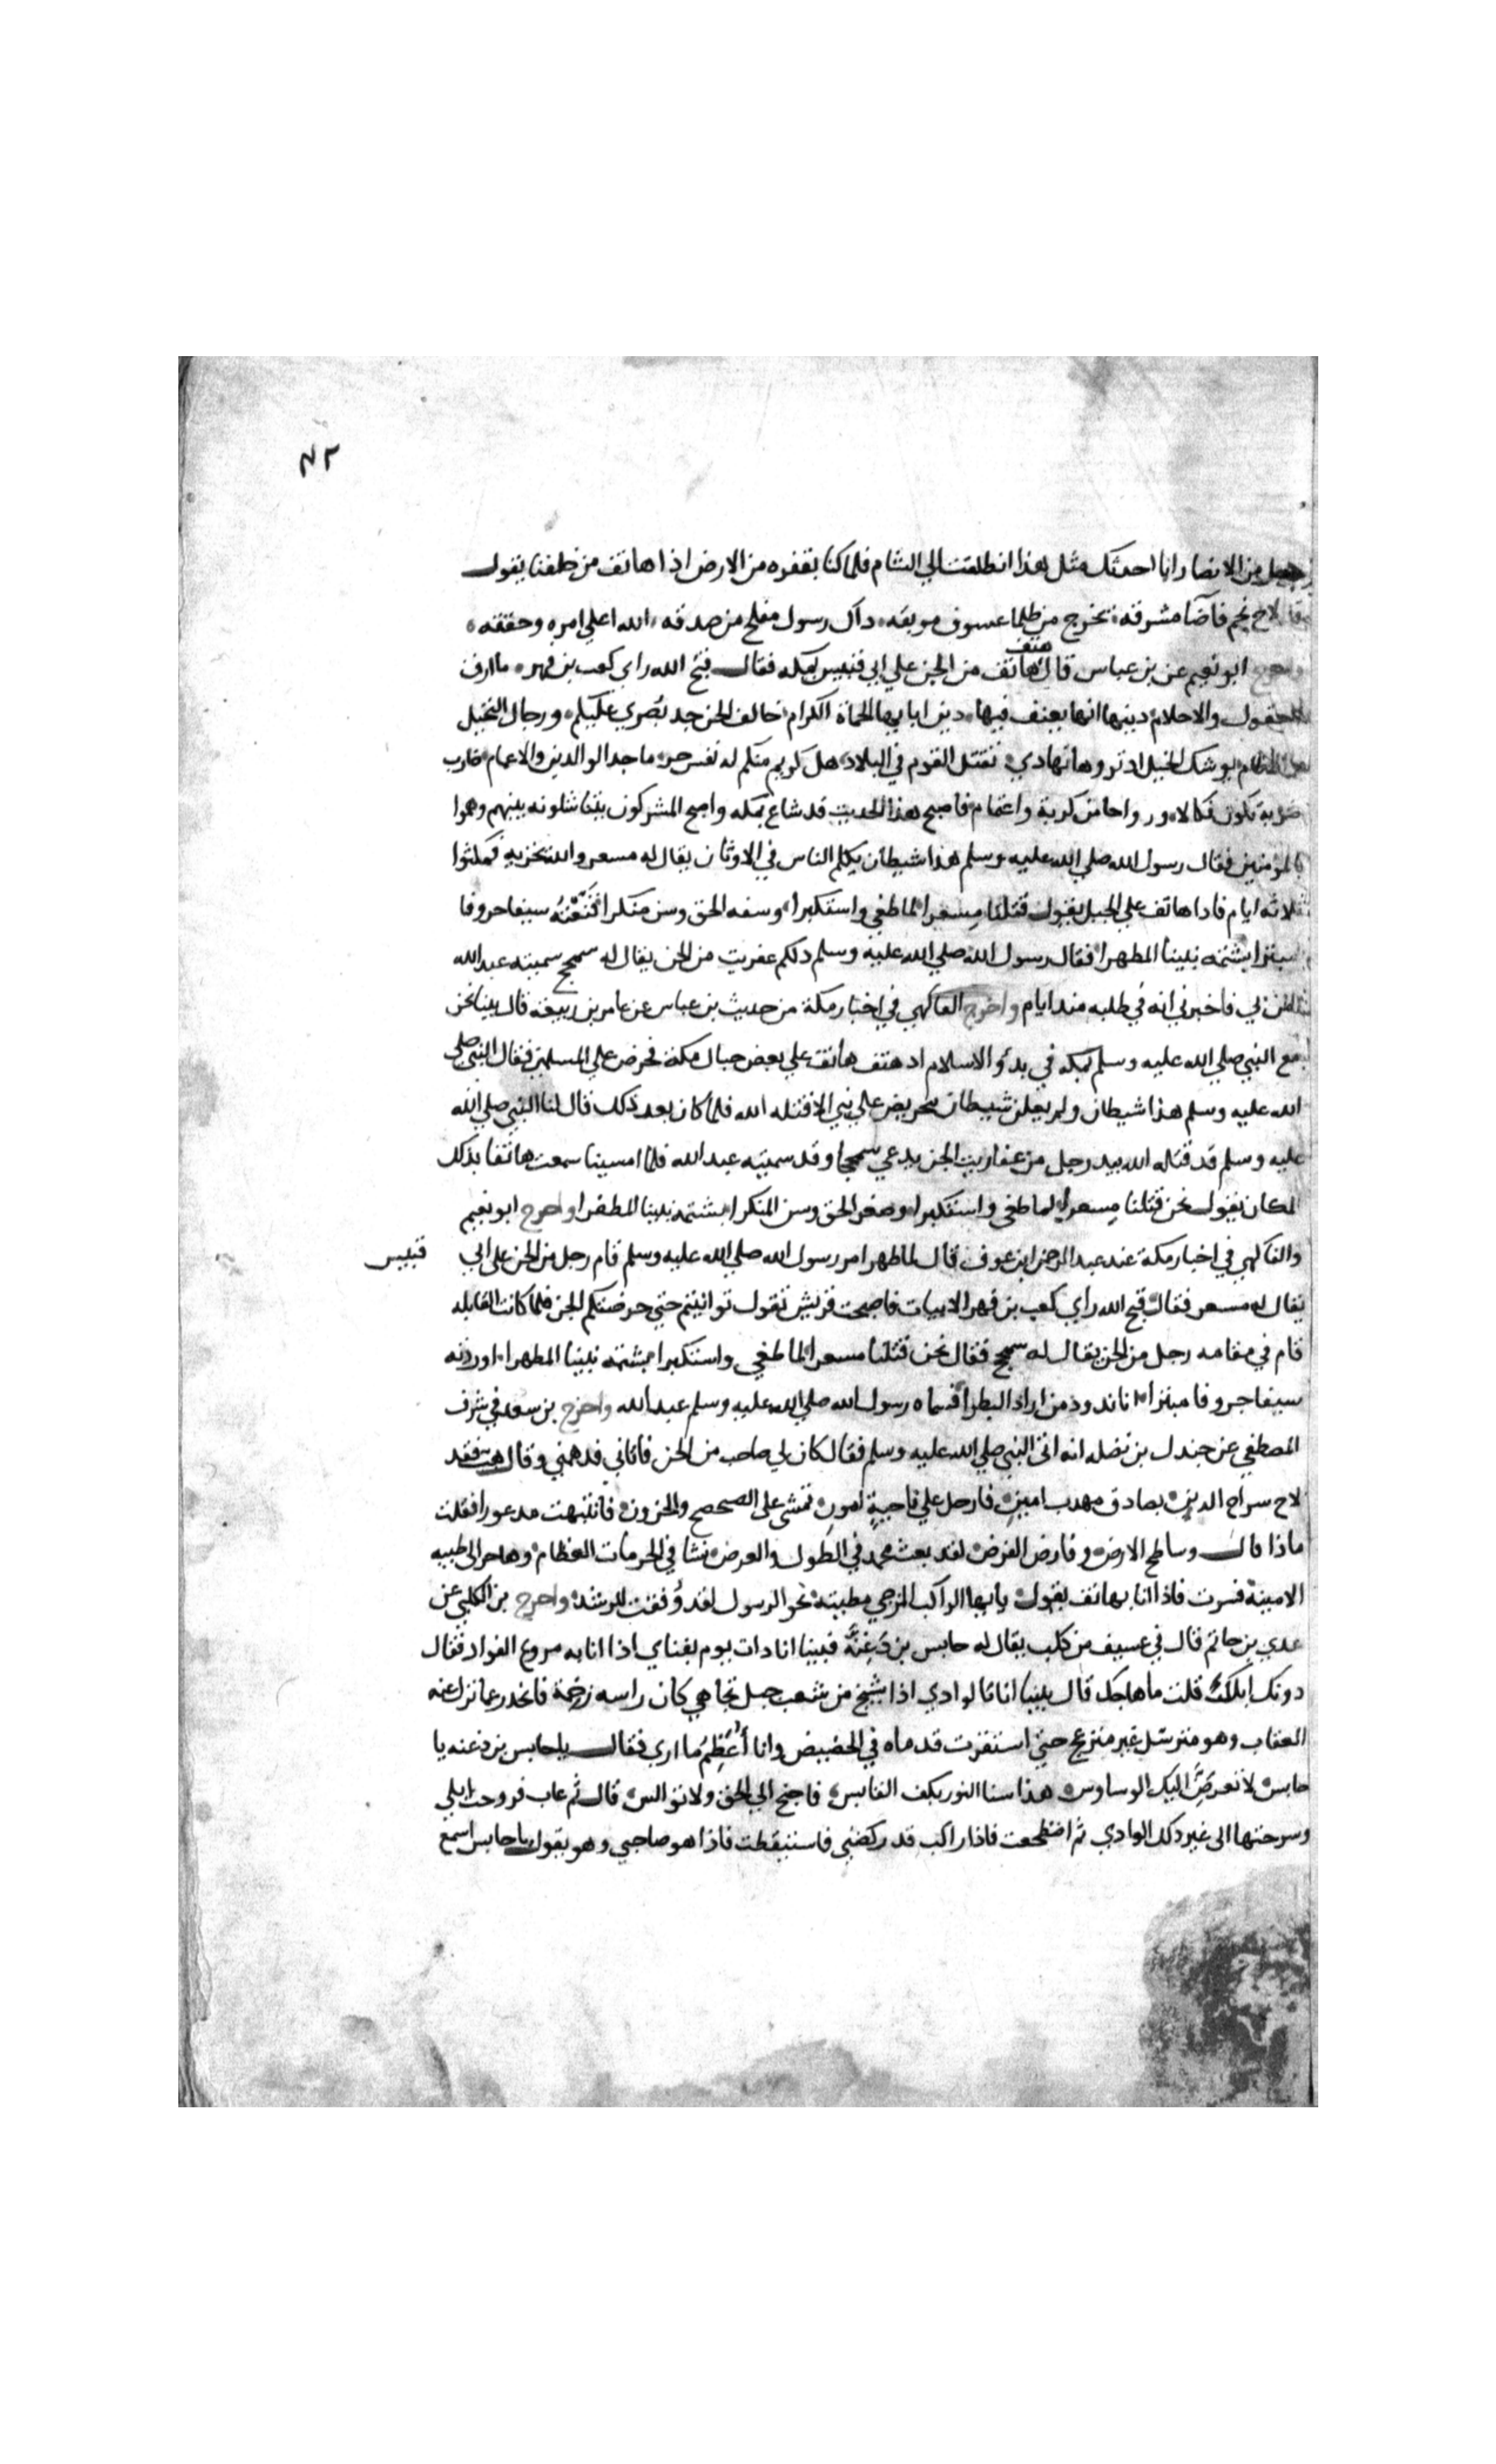 ٧٢
رجل من الانصار انا احدثك مثل هذا انطلقت الي الشام فلما كنا بقفره من الارض اذا هاتف من خلفنا يقول
لاح نجم فاضا مشرقه • يخرج من ظلما عسوف موبقه • داك رسول مفلح من صدقه • الله اعلي امره وحققه •
واخرج ابو نعيم عن بن عباس قال هتف هاتف من الجن علي ابي قبيس بمكه فقال قبح الله راي كعب بن فهر • ما ارق
العقول والاحلام • دينها انها يعنف فيها • دين ابايها الحماة الكرام • خالف الجن جد بصري عليكم • ورجال النخيل
والاطام • يوشك الخيل ان تروها تهادي • تقتل القوم في البلاد • هل كريم منكم له نفس حر • ماجد الوالدين والاعمام • ضارب
ضربة تكون نكالا • ورواحا من كربة واغتمام • فاصبح هذا الحديث قد شاع بمكه واصبح المشركون يتناشدونه بينهم وهموا
بالمؤمنين فقال رسول الله صلي الله عليه وسلم هذا شيطان يكلم الناس في الاوثان يقال له مسعر والله يخزيه فمكثوا
ثلاثه ايام فادا هاتف علي الجبل يقول قتلنا مسعرا • لما طغي واستكبرا • وسفه الحق وسن منكرا • قنعته سيفا حروفا
مبترا • بشتمه نبينا المطهرا • فقال رسول الله صلي الله عليه وسلم دلكم عفريت من الجن يقال له سمحج سميته عبد الله
امن بي فاخبرني انه في طلبه مند ايام واخرج الفاكهي في اخبار مكة من حديث بن عباس عن عامر بن ربيعة قال بينا نحن
مع النبي صلي الله عليه وسلم بمكه في بدؤ الاسلام اد هتف هاتف علي بعض جبال مكة فحرض علي المسلمين فقال النبي صلي
الله عليه وسلم هذا شيطان ولم يعلن شيطان بتحريض علي نبي الا قتله الله فلما كان بعد ذلك قال لنا النبي صلي الله
عليه وسلم قد قتله الله بيد رجل من عفاريت الجن يدعي سمحجا وقد سميته عبد الله فلما امسينا سمعت هاتفا بذلك
المكان يقول نحن قتلنا مسعرا • لما طغي واستكبرا • وصغر الحق وسن المنكرا • بشتمه نبينا المطهرا واخرج ابو نعيم
والفاكهي في اخبار مكة عند عبد الرحمن ابن عوف قال لما ظهر امر رسول الله صلي الله عليه وسلم قام رجل من الجن علي ابي قبيس
يقال له مسعر فقال قبح الله راي كعب بن فهر الابيات فاصبحت قريش تقول توانيتم حتي حرضتكم الجن فلما كانت القابله
قام في مقامه رجل من الجن يقال له سمحج فقال نحن قتلنا مسعرا • لما طغي واستكبرا • بشتمه نبينا المطهرا • اوردته
سيفا جروفا مبترا • انا ندود من اراد البطرا • فسماه رسول الله صلي الله عليه وسلم عبد الله واخرج بن سعد في شرف
المصطفي عن جندل بن نضله انه اتي النبي صلي الله عليه وسلم فقال كان لي صاحب من الجن فاتاني فدهمني وقال هب فقد
لاح سراج الدين • بصادق مهدب امين • فارحل علي ناجية امون • تمشي علي الصحصح والحزون • فانتبهت مدعورا فقلت
ماذا قال وساطح الارض • وفارض الفرض • لقد بعث محمد في الطول والعرض • نشا في الحرمات العظام • وهاجر الي طيبه
الامينة • فسرت فاذا انا بهاتف يقول • يايها الراكب المزجي مطيته • نحو الرسول لقد وفقت للرشد • واخرج بن الكلبي عن
عدي بن حاتم قال في عسيف من كلب يقال له حابس بن دغنة فبينا انا دات يوم بفناي اذا انا به مروع الفواد فقال
دونك ابلك قلت ما هاجك قال بينا انا بالوادي اذا بشيخ من شعب جبل تجاهي كان راسه رخمة فانحدر عما تزل عنه
العقاب وهو مترسل غير منزعج حتي استقرت قدماه في الحضيض وانا اعظم ما اري فقال ياحابس بن دغنه يا
حابس • لا تعرض اليك الوساوس • هذا سنا النور بكف القابس • فاجنح الي الحق ولا توالس • قال ثم غاب فروحت ابلي
وسرحتها الي غير ذلك الوادي ثم اضطجعت فاذا راكب قد ركضني فاستيقظت فاذا هو صاحبي وهو يقول يا حابس اسمع